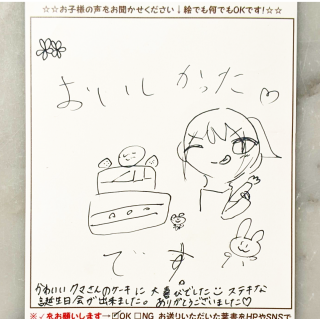 ☆☆お子様の声をお聞かせください↓絵でも何でもOKです!☆☆
おいしかった♡
です。
かわいいクマさんのケーキに大喜びでした☺ステキな
誕生日会が出来ました。ありがとうございました♡
※✓をお願いします→☑OK □NG お送りいただいた葉書をHPやSNSで